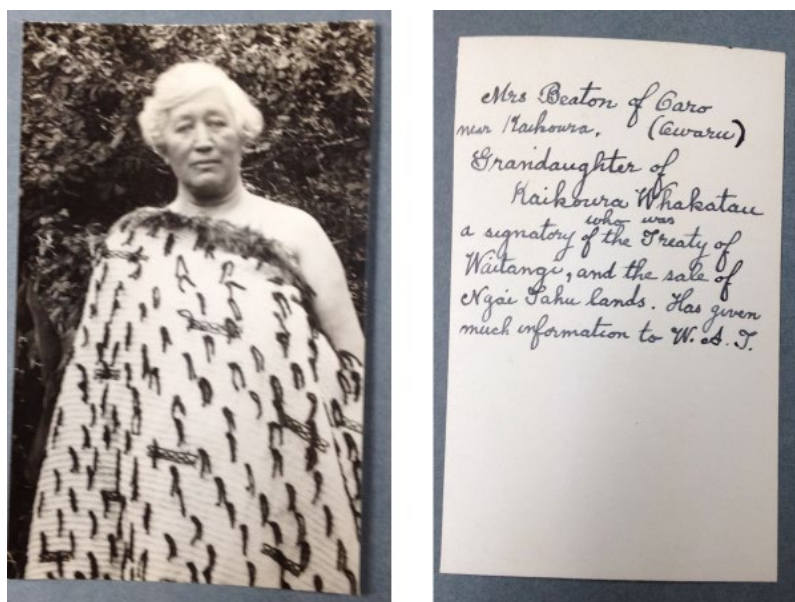 Mrs Beaton of Oaro
near Kaikoura. (Awaru)
Grandaughter of
Kaikoura Whakatau
who was
a signatory of the Treaty of
Waitangi, and the sale of
Ngai Tahu lands. Has given
much information to W. A. T.